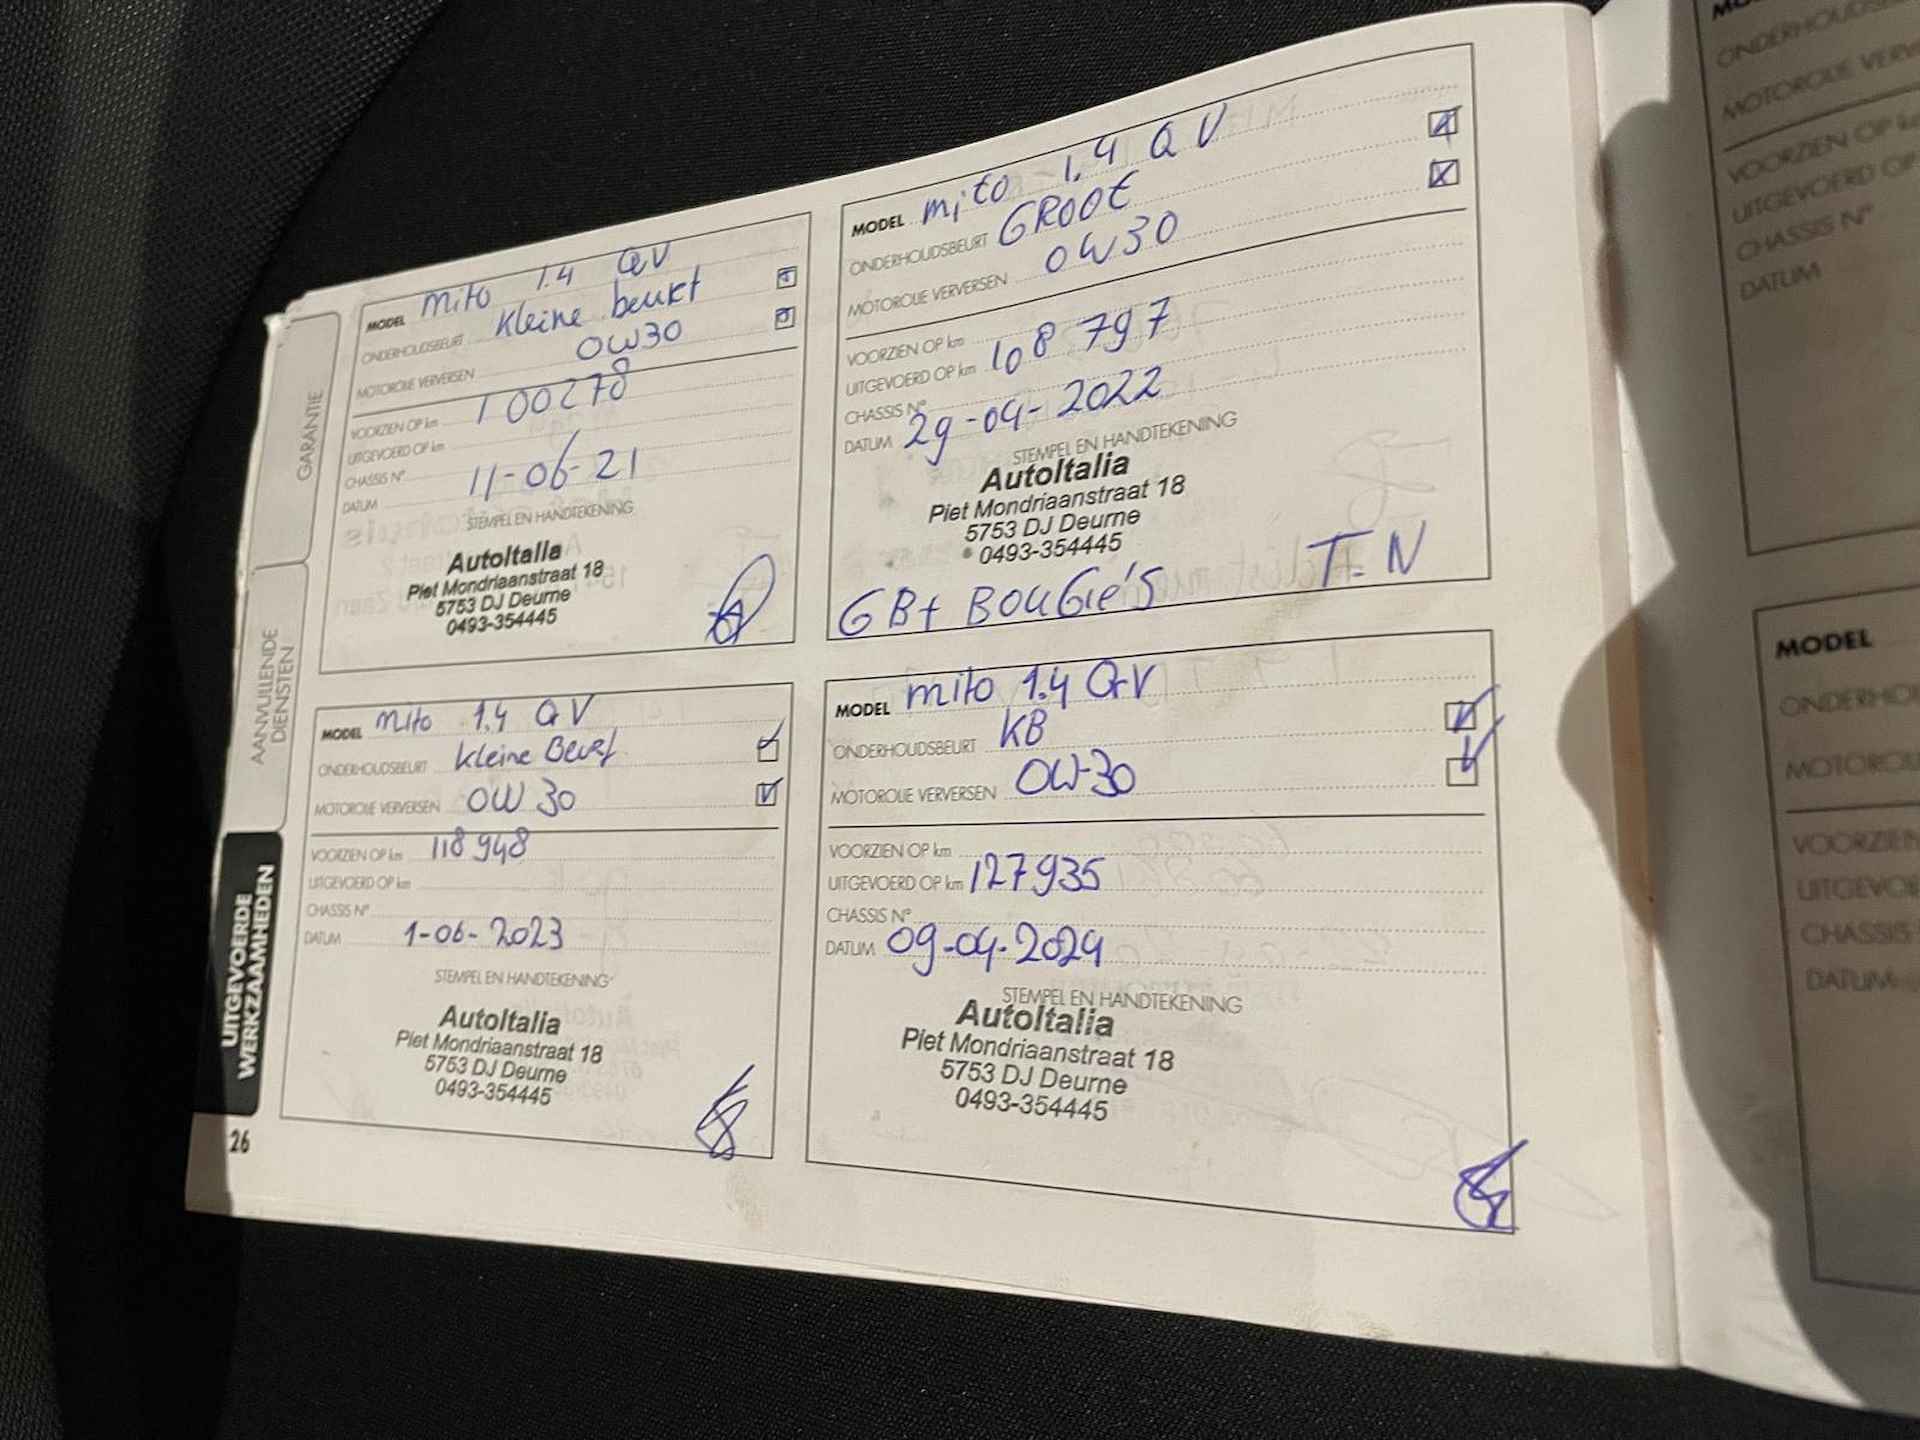 GARANTIE
AANVULLENDE
DIENSTEN
UITGEVOERDE
WERKZAAMHEDEN
26
MODEL mito 1.4 QV
ONDERHOUDSBEURT kleine beurt
MOTOROLIE VERVERSEN 0W30
VOORZIEN OP km 100278
UITGEVOERD OP km
CHASSIS N°
DATUM 11-06-21
STEMPEL EN HANDTEKENING
AutoItalia
Piet Mondriaanstraat 18
5753 DJ Deurne
0493-354445
MODEL mito 1.4 QV
ONDERHOUDSBEURT GROOt
MOTOROLIE VERVERSEN 0W30
VOORZIEN OP km
UITGEVOERD OP km 108797
CHASSIS N°
DATUM 29-04-2022
STEMPEL EN HANDTEKENING
AutoItalia
Piet Mondriaanstraat 18
5753 DJ Deurne
0493-354445
GB+ BOUGie'S T-N
MODEL mito 1.4 QV
ONDERHOUDSBEURT kleine Beurt
MOTOROLIE VERVERSEN 0W30
VOORZIEN OP km 118948
UITGEVOERD OP km
CHASSIS N°
DATUM 1-06-2023
STEMPEL EN HANDTEKENING
AutoItalia
Piet Mondriaanstraat 18
5753 DJ Deurne
0493-354445
MODEL mito 1.4 QV
ONDERHOUDSBEURT KB
MOTOROLIE VERVERSEN 0W-30
VOORZIEN OP km
UITGEVOERD OP km 127935
CHASSIS N°
DATUM 09-04-2024
STEMPEL EN HANDTEKENING
AutoItalia
Piet Mondriaanstraat 18
5753 DJ Deurne
0493-354445
VOORZIEN OP
UITGEVOERD OP
CHASSIS N°
DATUM
MODEL
CHASSIS
DATUM